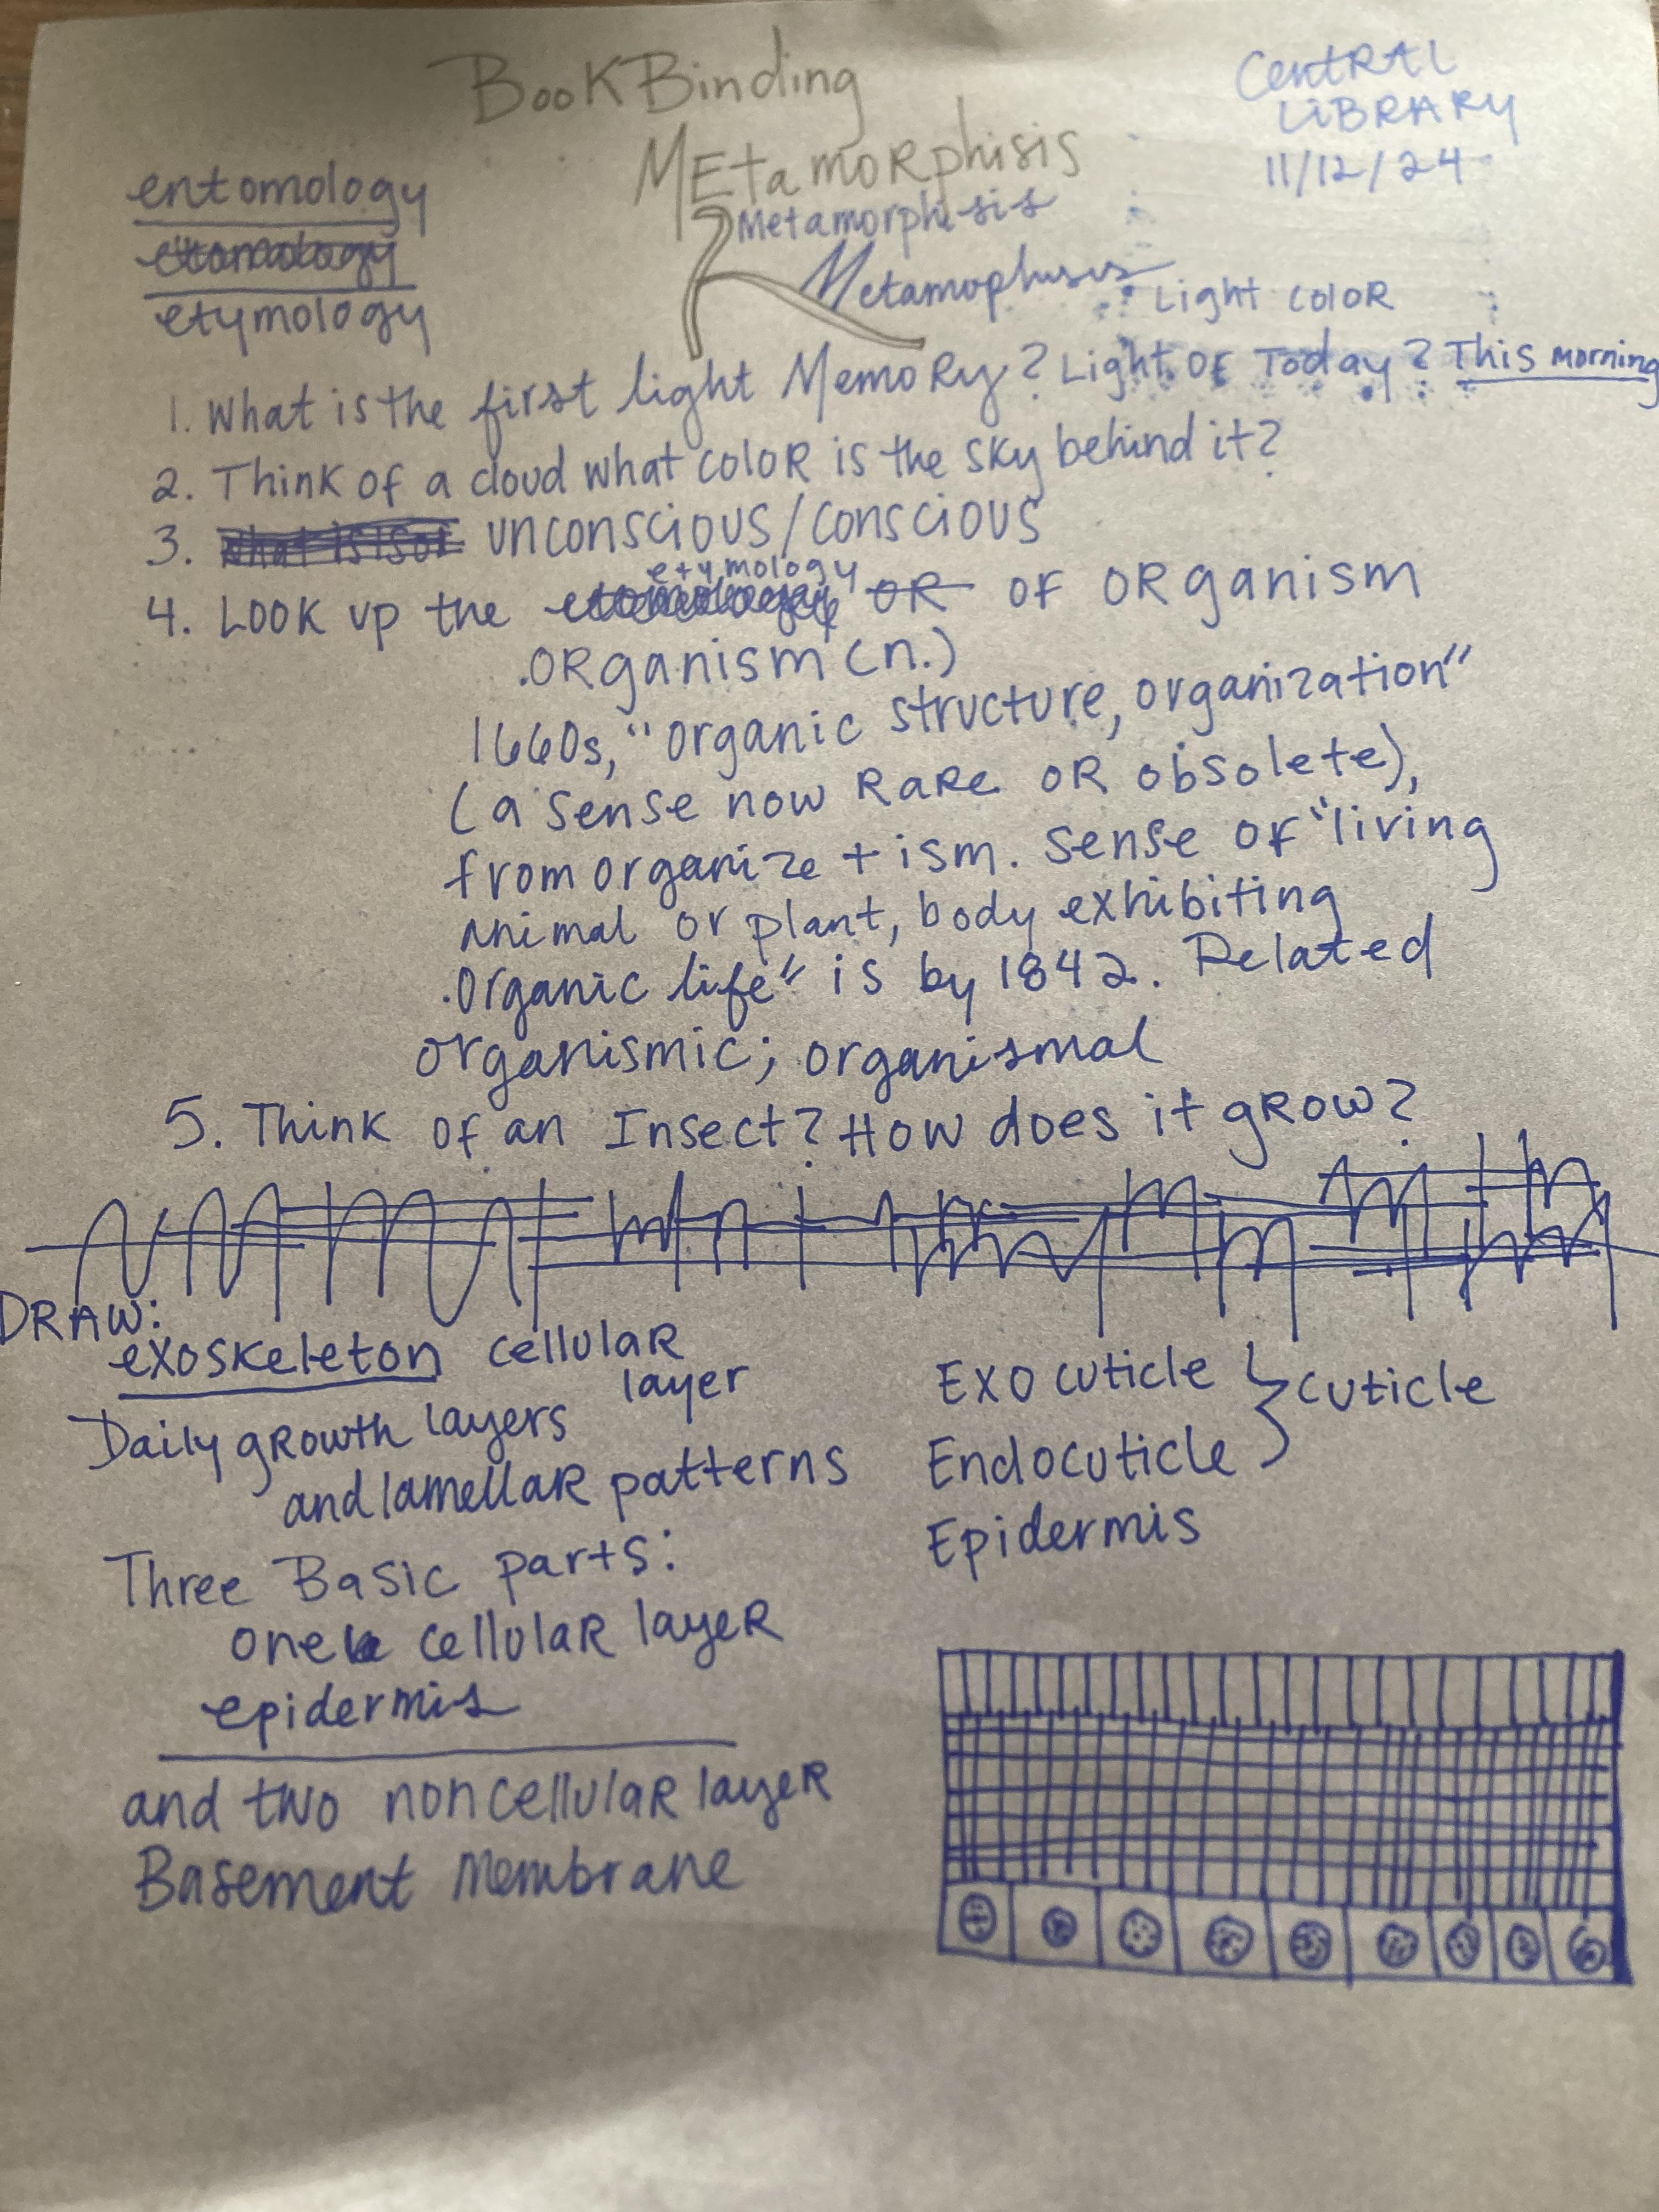 BookBinding
Metamorphisis
Central
Library
11/12/24
entomology
etomology
etymology
Metamorphisis
Metamophisis
Light color
1. What is the first light Memory? Light of Today? This morning
2. Think of a cloud what color is the sky behind it?
3. What is unconscious/conscious
etymology
4. Look up the or of organism
organism (n.)
1660s, "organic structure, organization"
(a sense now rare or obsolete),
from organize + ism. Sense of "living
animal or plant, body exhibiting
organic life" is by 1842. Related
organismic; organismal
5. Think of an Insect? How does it grow?
DRAW:
exoskeleton cellular
layer
Daily growth layers
and lamellar patterns
Three Basic parts:
one cellular layer
epidermis
and two noncellular layer
Basement Membrane
Exocuticle
Endocuticle
cuticle
Epidermis